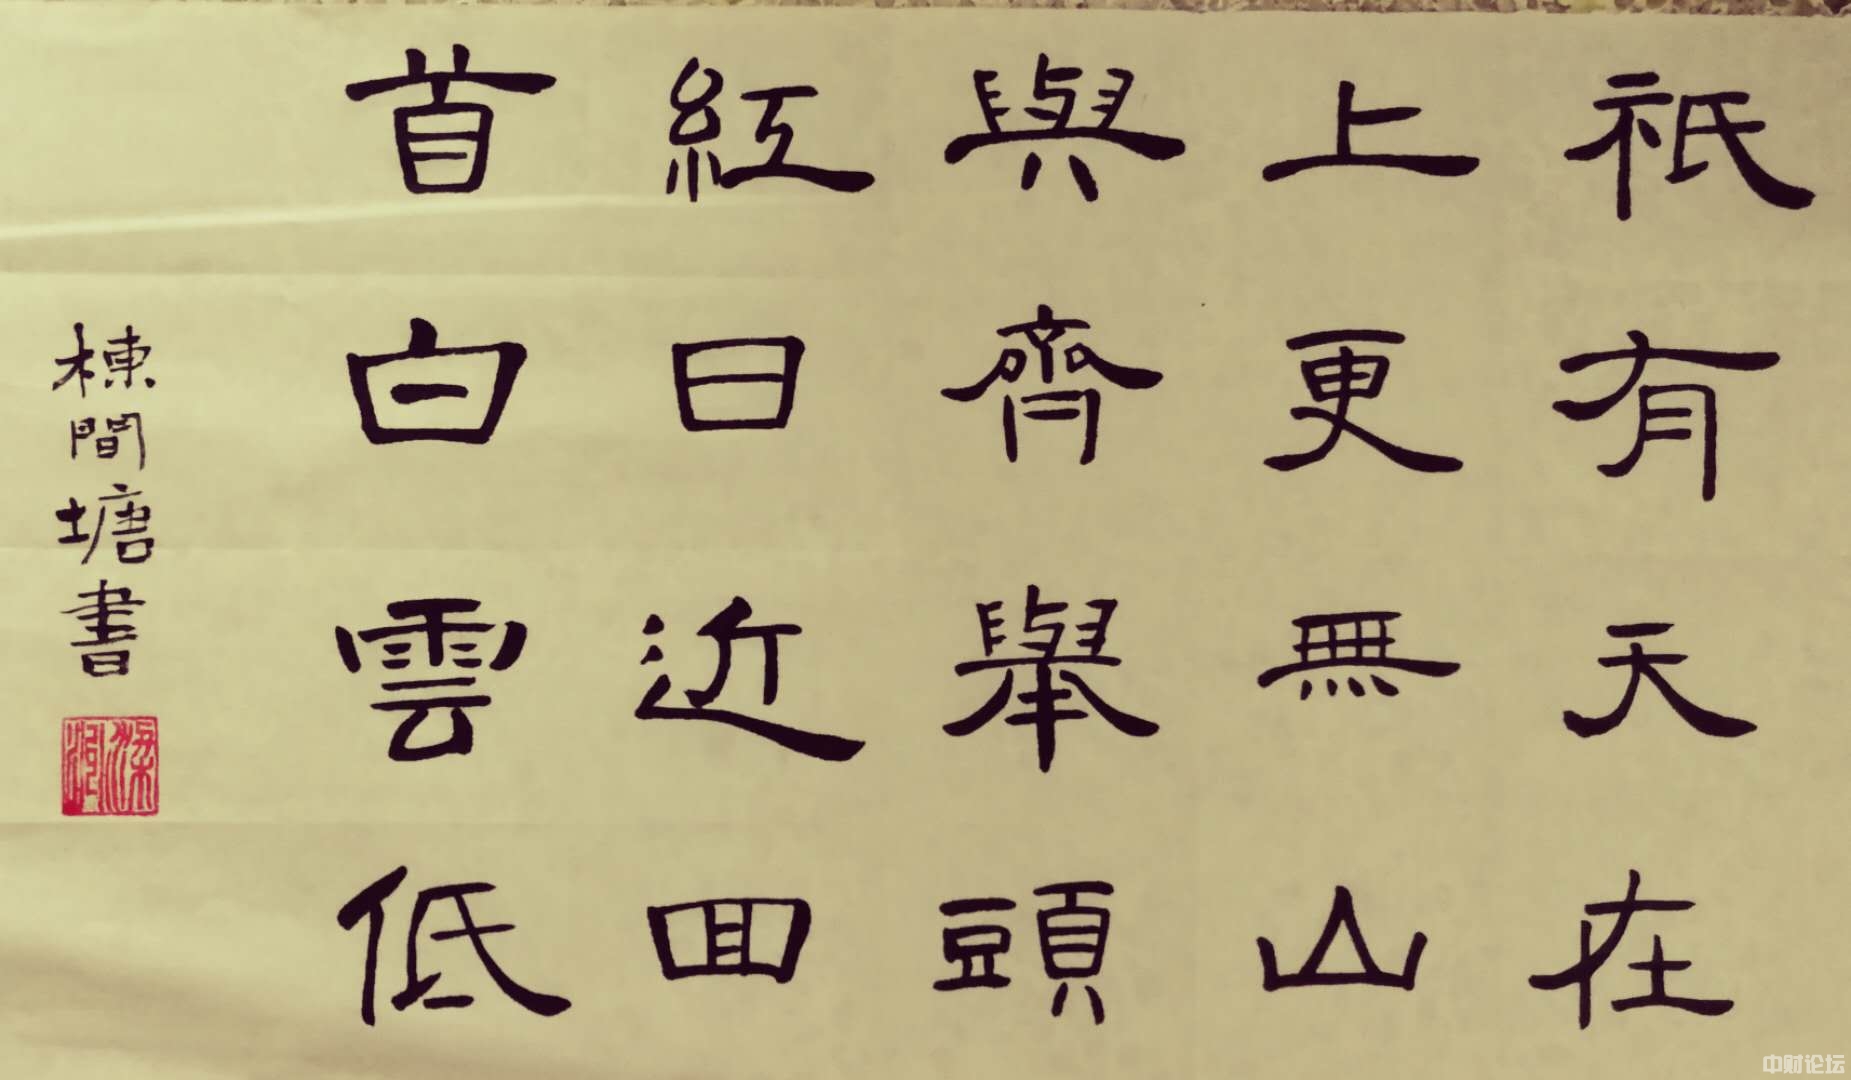 祇有天在
上更無山
與齊舉頭
紅日近回
首白雲低
棟間塘書
中财论坛